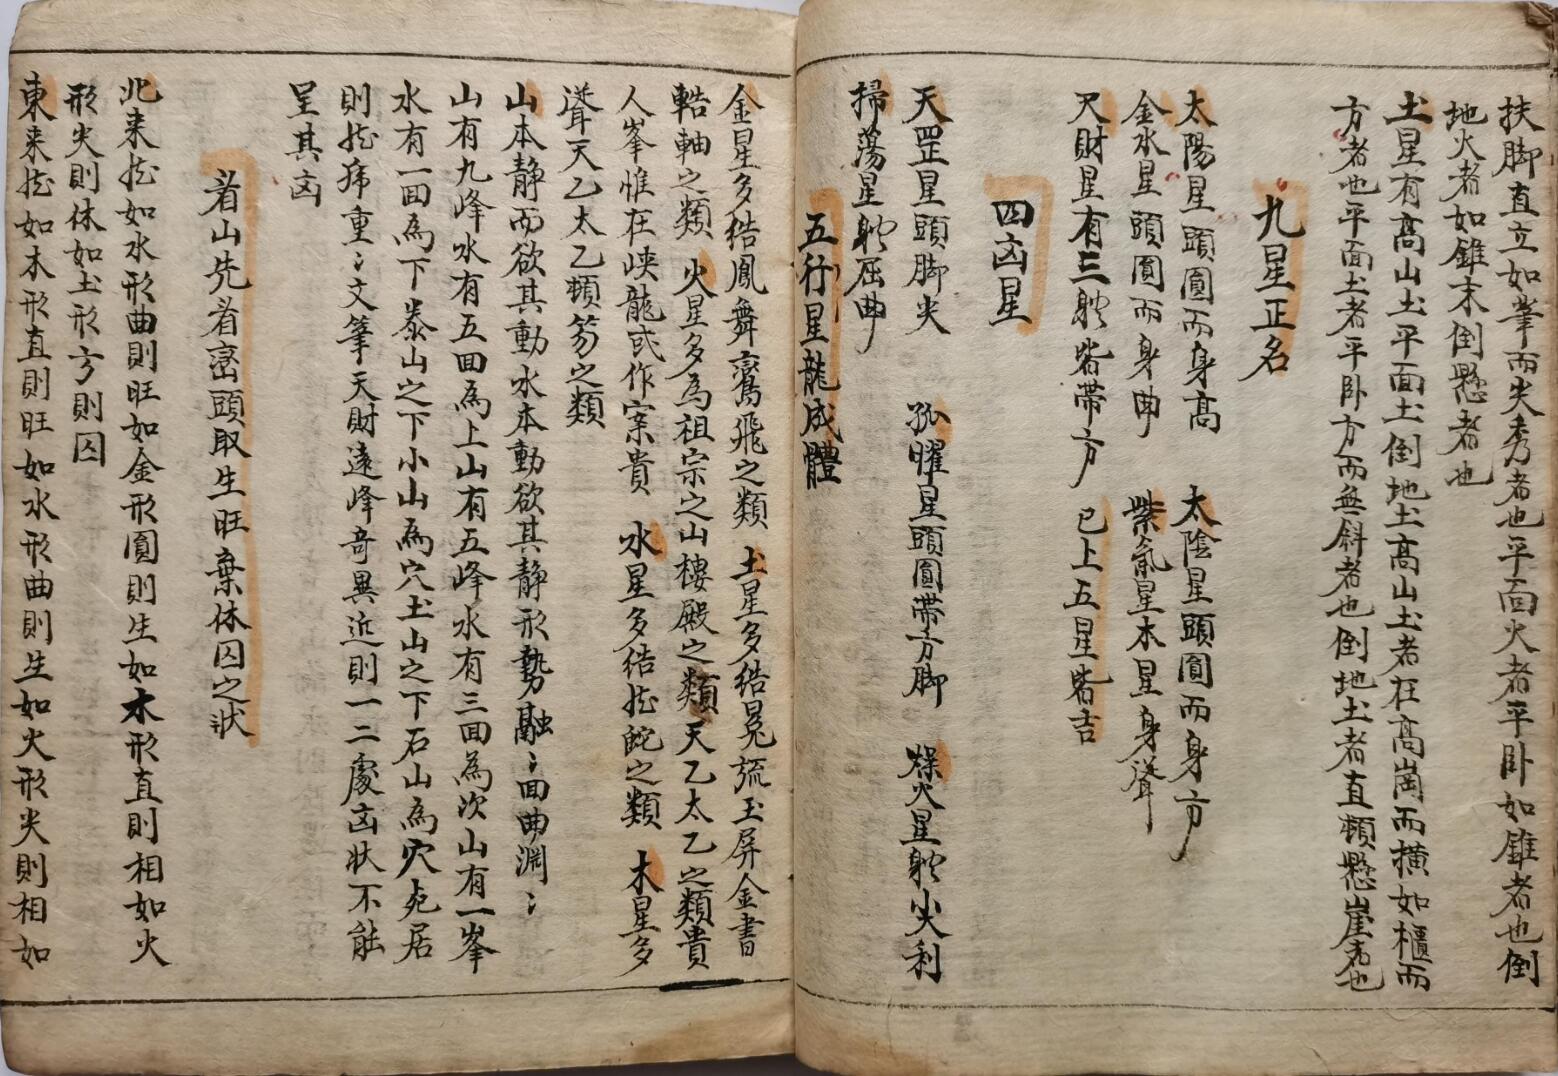 扶脚直立如筆而尖秀者也平面火者平卧如錐者也倒
地火者如錐末倒懸者也
土星有高山土平面土倒地土高山土者在高崗而横如櫃而
方者也平面土者平卧方而無斜者也倒地土者直頓懸崖者也
九星正名
太陽星頭圓而身高 太陰星頭圓而身方
金水星頭圓而身曲 紫氣星木星身聳
天財星有三躰皆帶方 已上五星皆吉
四凶星
天罡星頭脚尖 孤曜星頭圓帶方脚 燥火星躰尖利
掃蕩星躰屈曲
五行星龍成體
金星多結鳳舞鸞飛之類 土星多結冕旒玉屏金書
誥軸之類 火星多為祖宗之山樓殿之類天乙太乙之類貴
人峯惟在峡龍或作案貴 水星多結蛇之類 木星多
聳天乙太乙頓笏之類
山本静而欲其動水本動欲其静形勢融〻曲淵〻
山有九峰水有五曲為上山有五峰水有三曲為次山有一峯
水有一曲為下泰山之下小山為穴土山之下石山為穴居
則重〻文筆天財遠峰奇異近則一二處凶状不能
呈其凶
看山先看巒頭取生旺棄休囚之状
北来如水形曲則旺如金形圓則生如木形直則相如火
形尖則休如土形方則囚
東来如木形直則旺如水形曲則生如火形尖則相如